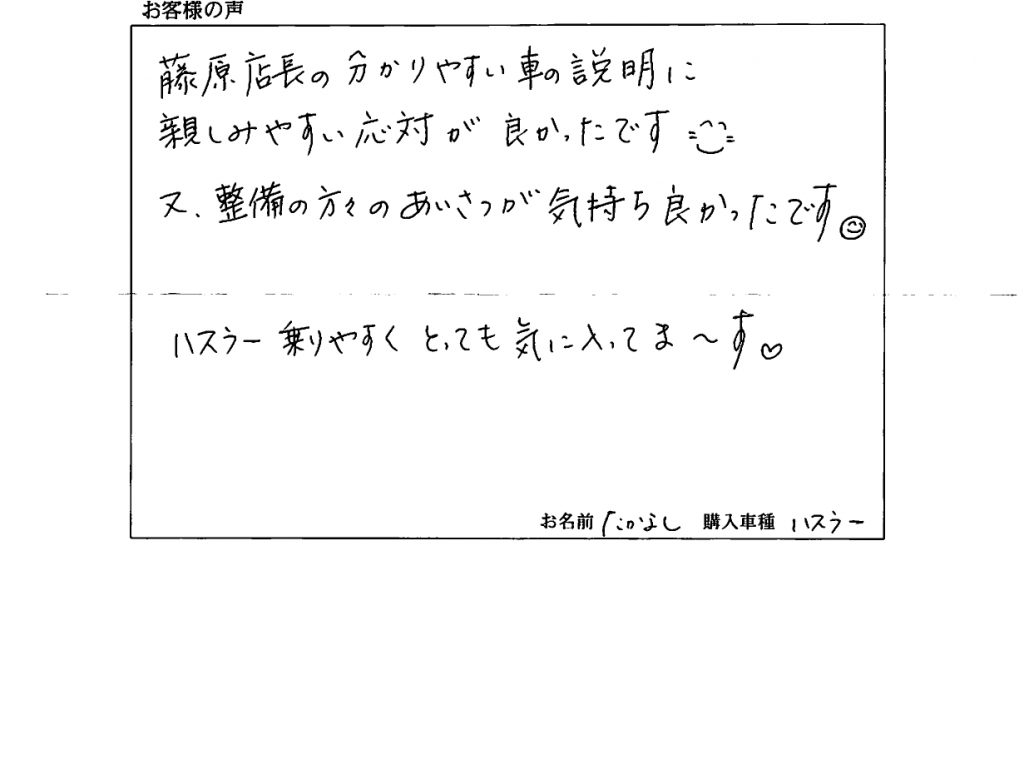 お客様の声
藤原店長の分かりやすい車の説明に
親しみやすい応対が良かったです
又、整備の方々のあいさつが気持ち良かったです
ハスラー乗りやすくとっても気に入ってま〜す♡
お名前 たかなし 購入車種 ハスラー